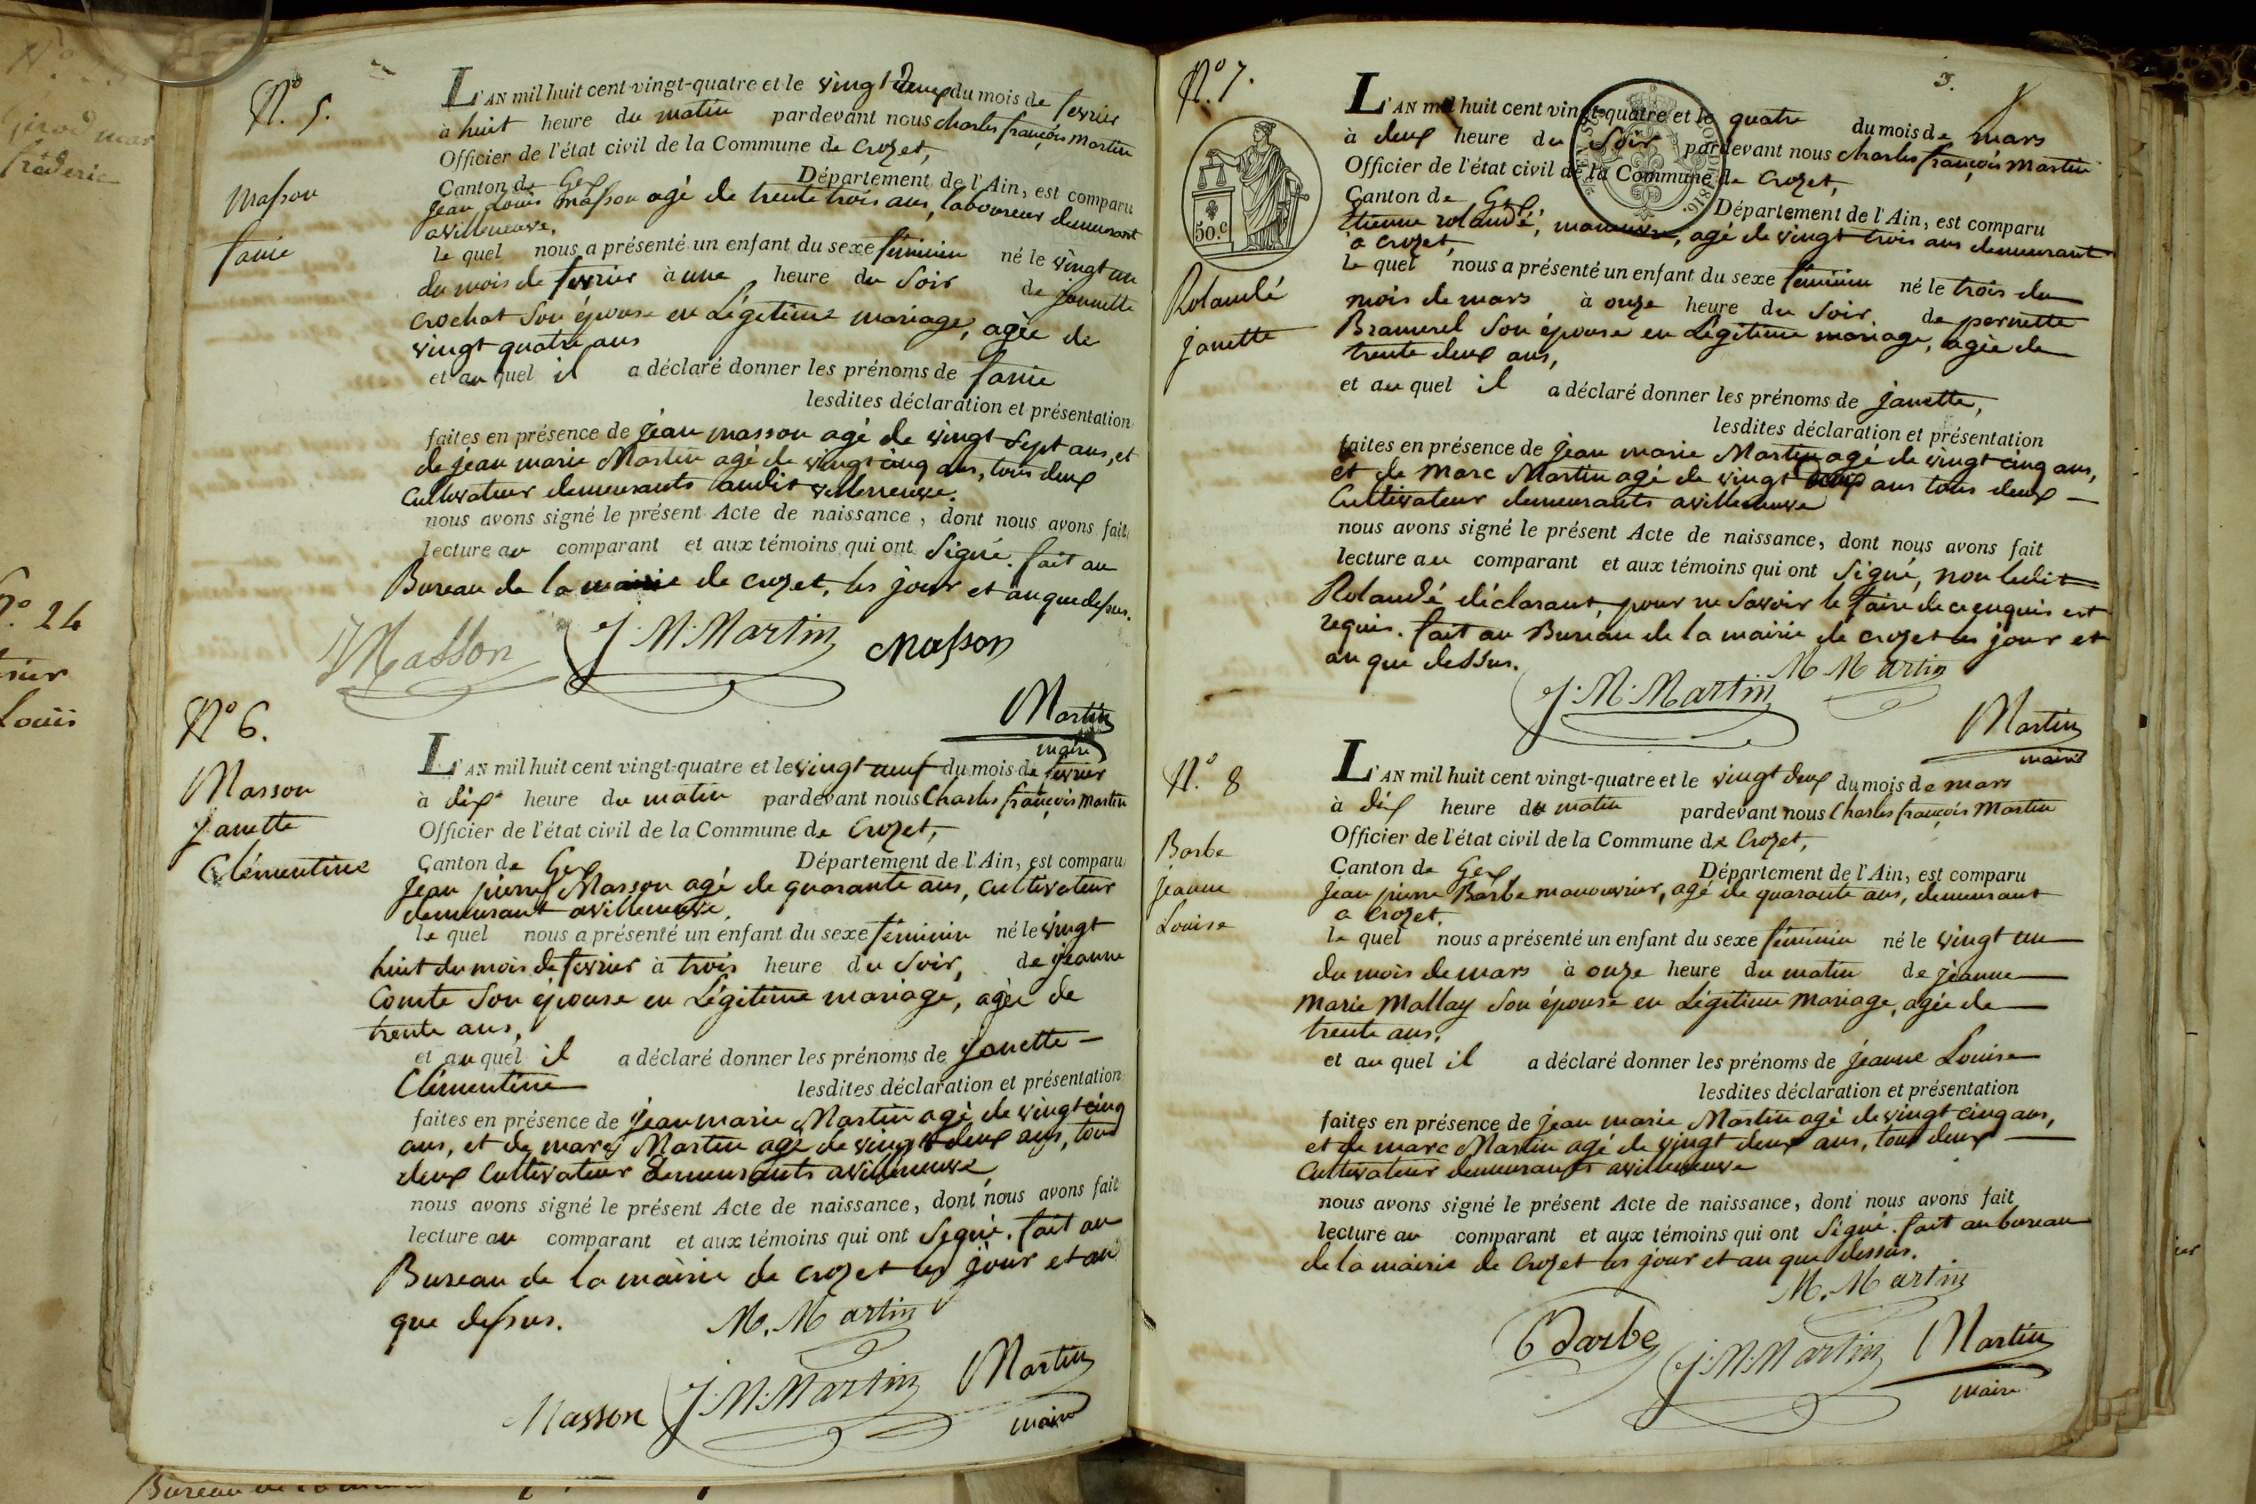 N.º 5.
Masson
fanie
L'AN mil huit cent vingt-quatre et le vingt deux du mois de fevrier
à huit heure du matin pardevant nous charles françois Martin
Officier de l'état civil de la Commune de Crozet,
Canton de Gex Département de l'Ain, est comparu
jean Louis Masson agé de trente trois ans, laboureur demeurant
avilleneuve.
le quel nous a présenté un enfant du sexe féminin né le vingt un
du mois de fevrier à une heure du soir de jannette
crochat son épouse en Légitime mariage, agée de
vingt quatre ans
et au quel il a déclaré donner les prénoms de fanie
lesdites déclaration et présentation
faites en présence de jean masson agé de vingt sept ans, et
de jean marie Martin agé de vingt cinq ans, tous deux
Cultivateur demeurants audit villeneuve.
nous avons signé le présent Acte de naissance, dont nous avons fait
lecture au comparant et aux témoins qui ont Signé. fait au
Bureau de la mairie de crozet, les jour et an que dessus.
Masson J. M. Martin Masson
Martin
maire
N.º 6.
Masson
janette
Clémentine
L'AN mil huit cent vingt-quatre et le vingt neuf du mois de fevrier
à dix heure du matin pardevant nous Charles françois Martin
Officier de l'état civil de la Commune de Crozet,
Canton de Gex Département de l'Ain, est comparu
jean pierre Masson agé de quarante ans, cultivateur
demeurant avilleneuve,
le quel nous a présenté un enfant du sexe féminin né le vingt
huit du mois de fevrier à trois heure du soir, de jeanne
Comte son épouse en Légitime mariage, agée de
trente ans,
et au quel il a déclaré donner les prénoms de janette
Clémentine lesdites déclaration et présentation
faites en présence de jean marie Martin agé de vingt cinq
ans, et de marc Martin agé de vingt deux ans, tous
deux Cultivateur demeurants avilleneuve
nous avons signé le présent Acte de naissance, dont nous avons fait
lecture au comparant et aux témoins qui ont Signé. fait au
Bureau de la mairie de crozet les jour et an
que dessus.
M. Martin
Masson J. M. Martin Martin
maire
3.
N.º 7.
50.c
1816.
Rolandé
janette
L'AN mil huit cent vingt-quatre et le quatre du mois de mars
à deux heure du soir pardevant nous charles françois Martin
Officier de l'état civil de la Commune de Crozet,
Canton de Gex, Département de l'Ain, est comparu
Etienne rolandé, manuvre, agé de vingt trois ans demeurant
a crozet,
le quel nous a présenté un enfant du sexe féminin né le trois du
mois de mars à onze heure du soir de pernette
Bramerel son épouse en Légitime mariage, agée de
trente deux ans,
et au quel il a déclaré donner les prénoms de janette,
lesdites déclaration et présentation
faites en présence de jean marie Martin agé de vingt cinq ans,
et de Marc Martin agé de vingt deux ans tous deux
Cultivateur demeurants avilleneuve
nous avons signé le présent Acte de naissance, dont nous avons fait
lecture au comparant et aux témoins qui ont Signé, non ledit
Rolandé déclarant, pour ne savoir le faire de ce enquis est
requis. fait au Bureau de la mairie de crozet les jour et
an que dessus.
M Martin
J. M. Martin
Martin
maire
N.º 8
Barbe
jeanne
Louise
L'AN mil huit cent vingt-quatre et le vingt deux du mois de mars
à dix heure du matin pardevant nous Charles françois Martin
Officier de l'état civil de la Commune de Crozet,
Canton de Gex, Département de l'Ain, est comparu
jean pierre Barbe manouvrier, agé de quarante ans, demeurant
a crozet.
le quel nous a présenté un enfant du sexe féminin né le vingt un
du mois de mars à onze heure du matin de jeanne
marie Mallay son épouse en Légitime mariage, agée de
trente ans,
et au quel il a déclaré donner les prénoms de jeanne Louise
lesdites déclaration et présentation
faites en présence de jean marie Martin agé de vingt cinq ans,
et de marc Martin agé de vingt deux ans, tous deux
Cultivateur demeurants avilleneuve
nous avons signé le présent Acte de naissance, dont nous avons fait
lecture au comparant et aux témoins qui ont Signé. fait au bureau
de la mairie de Crozet les jour et an que dessus.
M. Martin
Barbe J. M. Martin Martin
maire